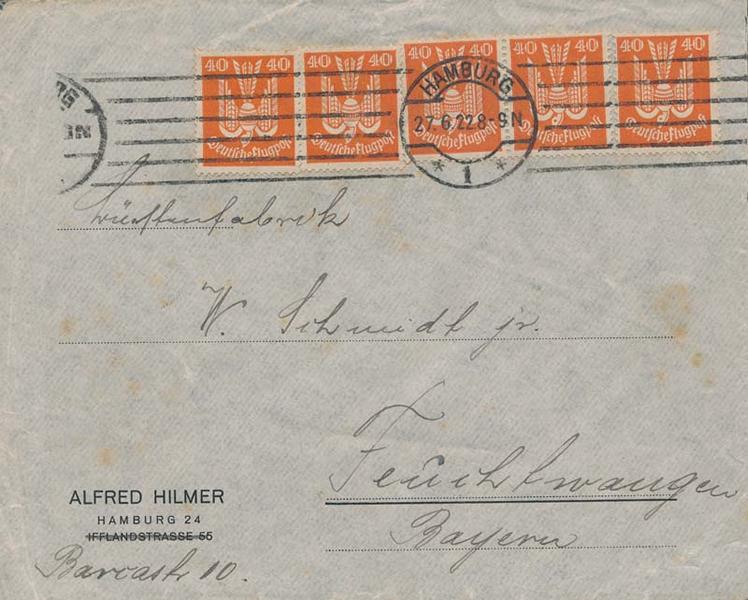 40 40 40 40 40 40 40 40 40 40
Deutsche Flugpost Deutsche Flugpost Deutsche Flugpost Deutsche Flugpost Deutsche Flugpost
HAMBURG
27.6.22 8-9N
* 1 *
Bürstenfabrik
W. Schmidt jr.
Feuchtwangen
Bayern
ALFRED HILMER
HAMBURG 24
IFFLANDSTRASSE 55
Barcastr 10.